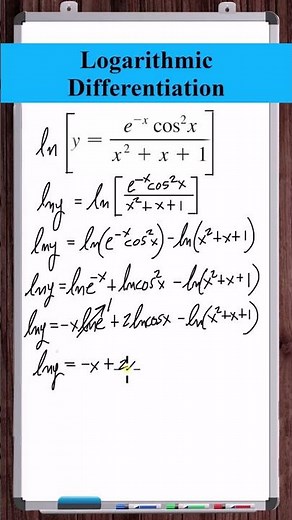 Logarithmic
Differentiation
ln [y = e^{-x} cos²x / x² + x + 1]
ln y = ln [e^{-x} cos²x / x² + x + 1]
ln y = ln(e^{-x} cos²x) - ln(x² + x + 1)
ln y = ln e^{-x} + ln cos²x - ln(x² + x + 1)
ln y = -x ln e 1 + 2 ln cos x - ln(x² + x + 1)
ln y = -x + 2